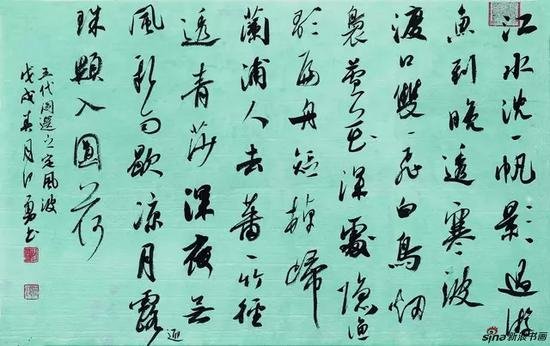 江水沈々帆影過游
魚到晚透寒波
渡口雙々飛白鳥烟
裊蘆花深處隱漁
歌扁舟短棹歸
蘭浦人去蕭々竹徑
透青莎深夜無
風新雨歇凉月露迎
珠顆入圓荷
五代閻選之定風波
戊戌春月江勇书
sina新浪书画